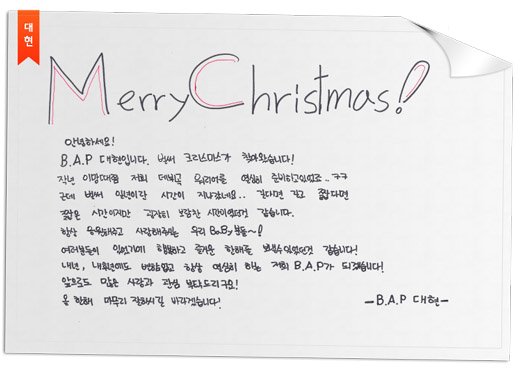 대현
Merry Christmas!
안녕하세요!
B.A.P 대현입니다. 벌써 크리스마스가 찾아왔습니다!
작년 이맘때쯤 저희 데뷔곡 워리어를 열심히 준비하고있었죠..ㅋㅋ
근데 벌써 일년이란 시간이 지나갔네요.. 길다면 길고 짧다면
짧은 시간이지만 굉장히 보람찬 시간이였던것 같습니다.
항상 응원해주고 사랑해주시는 우리 BaBy분들~!
여러분들이 있었기에 행복하고 즐거운 한해를 보낼수있었던것 같습니다!
내년, 내후년에도 변함없고 항상 열심히 하는 저희 B.A.P가 되겠습니다!
앞으로도 많은 사랑과 관심 부탁드리구요!
올 한해 마무리 잘하시길 바라겠습니다!
-B.A.P 대현-